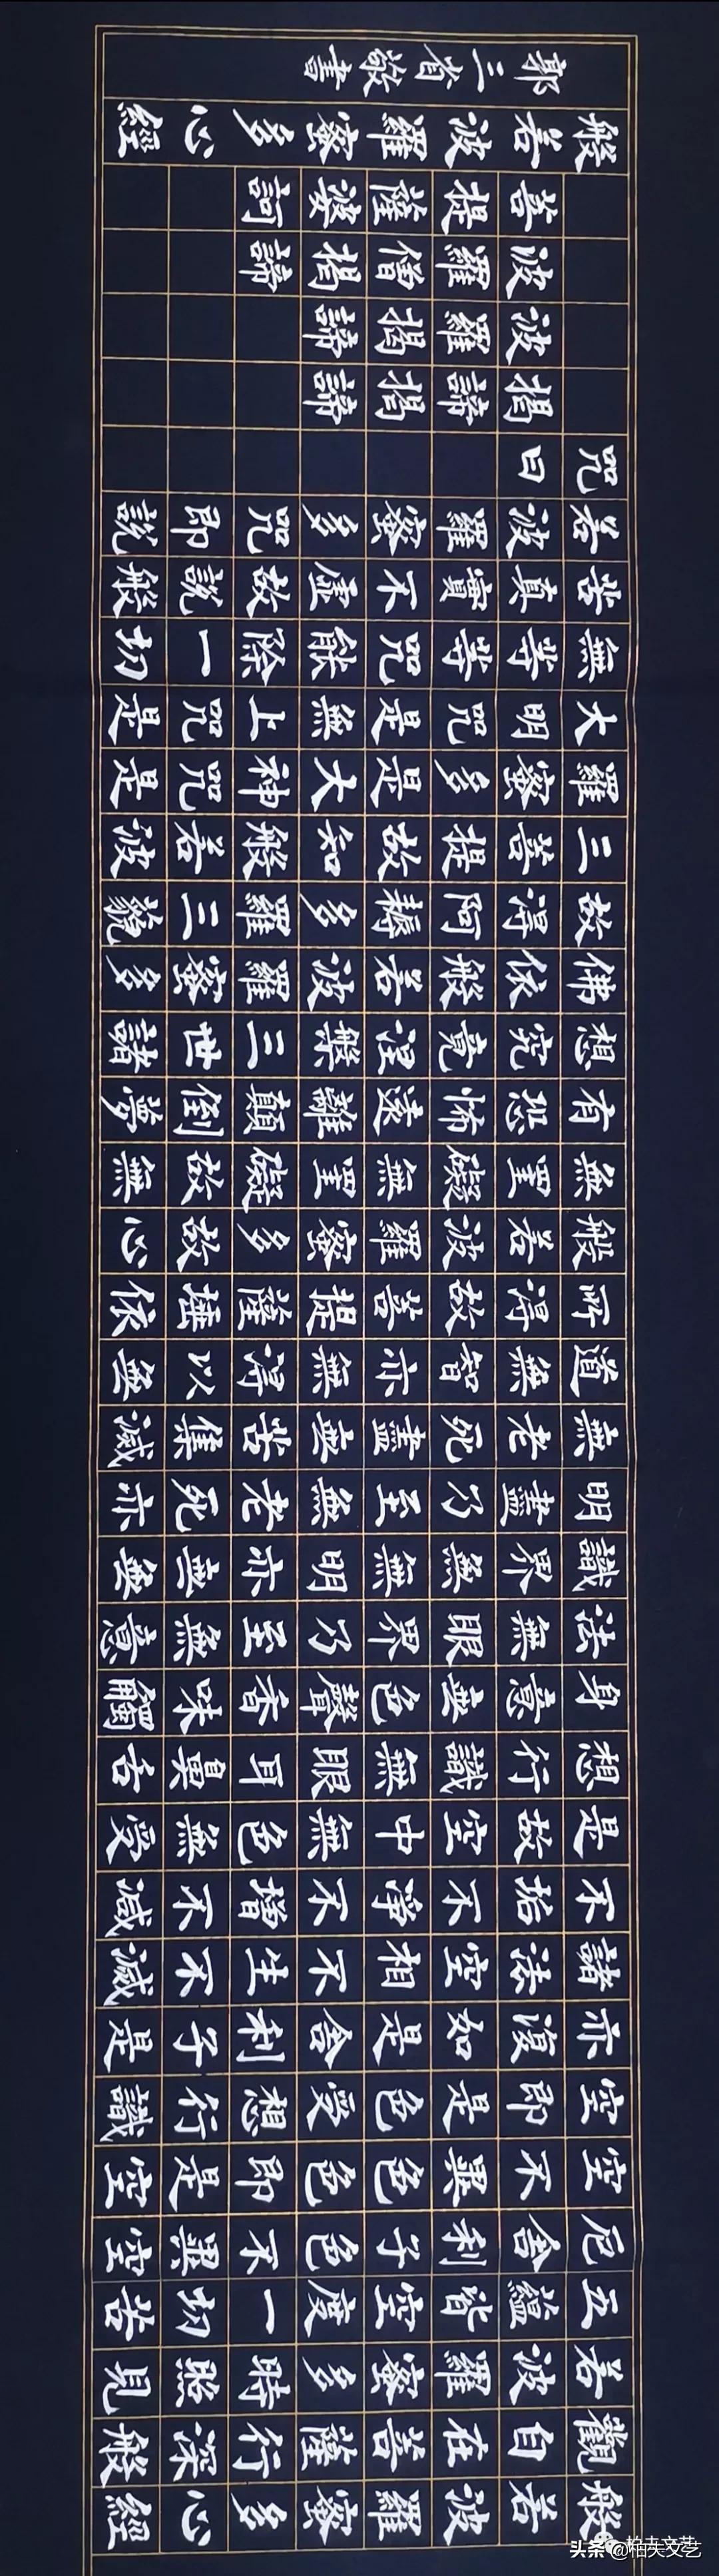 般若波羅蜜多心經
觀自在菩薩行深般
若波羅蜜多時照見
五蘊皆空度一切苦
厄舍利子色不異空
空不異色色即是空
空即是色受想行識
亦復如是舍利子是
諸法空相不生不滅
不垢不淨不增不減
是故空中無色無受
想行識無眼耳鼻舌
身意無色聲香味觸
法無眼界乃至無意
識界無無明亦無無
明盡乃至無老死亦
無老死盡無苦集滅
道無智亦無得以無
所得故菩提薩埵依
般若波羅蜜多故心
無罣礙無罣礙故無
有恐怖遠離顛倒夢
想究竟涅槃三世諸
佛依般若波羅蜜多
故得阿耨多羅三藐
三菩提故知般若波
羅蜜多是大神咒是
大明咒是無上咒是
無等等咒能除一切
苦真實不虛故說般
若波羅蜜多咒即說
咒曰
揭諦揭諦
波羅揭諦
波羅僧揭諦
菩提薩婆訶
般若波羅蜜多心經
郭三省敬書
头条 @柏夫文艺